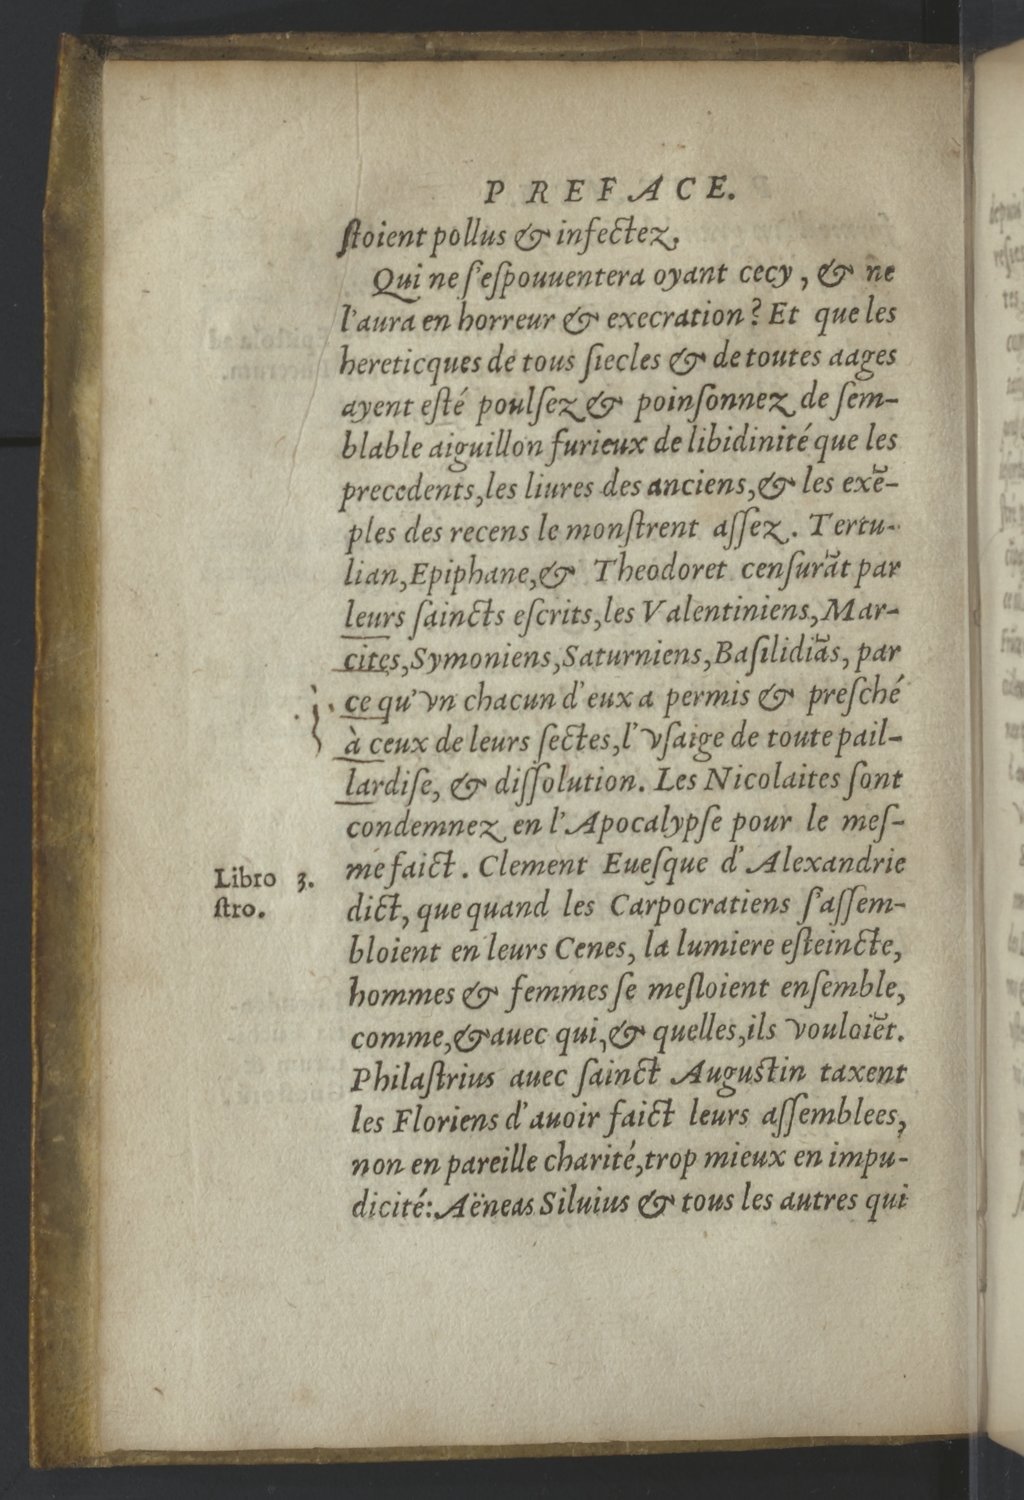 PREFACE.
ſtoient pollus & infectez.
Qui ne ſ'eſpouuentera oyant cecy, & ne
l'aura en horreur & execration? Et que les
hereticques de tous ſiecles & de toutes aages
ayent eſté poulſez & poinſonnez de ſem-
blable aiguillon furieux de libidinité que les
precedents, les liures des anciens, & les exẽ-
ples des recens le monſtrent aſſez. Tertu-
lian, Epiphane, & Theodoret cenſurãt par
leurs ſaincts eſcrits, les Valentiniens, Mar-
cites, Symoniens, Saturniens, Baſilidiãs, par
ce qu'vn chacun d'eux a permis & preſché
à ceux de leurs ſectes, l'vſaige de toute pail-
lardiſe, & diſſolution. Les Nicolaites ſont
condemnez en l'Apocalypſe pour le meſ-
me faict. Clement Eueſque d'Alexandrie
Libro 3.
ſtro.
dict, que quand les Carpocratiens ſ'aſſem-
bloient en leurs Cenes, la lumiere eſteincte,
hommes & femmes ſe meſloient enſemble,
comme, & auec qui, & quelles, ils vouloiẽt.
Philaſtrius auec ſainct Auguſtin taxent
les Floriens d'auoir faict leurs aſſemblees,
non en pareille charité, trop mieux en impu-
dicité: Aëneas Siluius & tous les autres qui